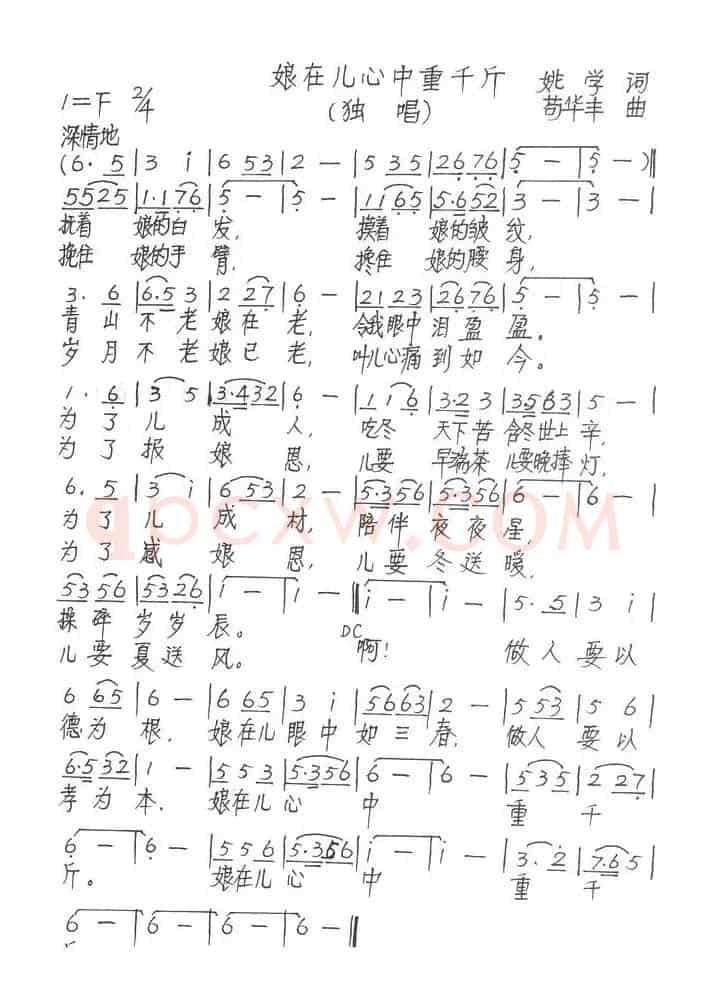 娘在儿心中重千斤 姚学 词
1=F 2/4 (独 唱) 苟华丰 曲
深情地
(6. 5|3 i|6 53|2 -|5 35|2676|5 -|5 -)‖
5525|1.176|5 -|5 -|1165|5.652|3 -|3 -|
抚着 娘的白发, 摸着 娘的皱纹,
挽住 娘的手臂, 搀住 娘的腰身,
3. 6|6.5 3|2 27|6 -|21 23|2676|5 -|5 -|
青山不老娘在老, 令我眼中泪盈盈。
岁月不老娘已老, 叫儿心痛到如今。
1. 6|3 5|3.432|6 -|1 1 6|3.2 3|3.563|5 -|
为了儿成人, 吃尽 天下苦 含尽世上辛,
为了报娘恩, 儿要 早端茶 儿要晚捧灯,
6. 5|3 i|6 53|2 -|5.356|5.356|6 -|6 -|
为了儿成材, 陪伴夜夜星,
为了感娘恩, 儿要冬送暖,
5356|5326|i -|i -‖i -|i -|5. 5|3 i|
操碎岁岁辰。 DC 啊! 做人要以
儿要夏送风。
6 65|6 -|6 65|3 i|5663|2 -|5 53|5 6|
德为根, 娘在儿眼中如三春, 做人要以
6.532|1 -|5 5 3|5.356|6 -|6 -|5 35|2 27|
孝为本. 娘在儿心中重千
6 -|6 -|5 5 6|5.356|i -|i -|3. 2|7.6 5|
斤。 娘在儿心中重千
6 -|6 -|6 -|6 -‖
qpcxw.COM